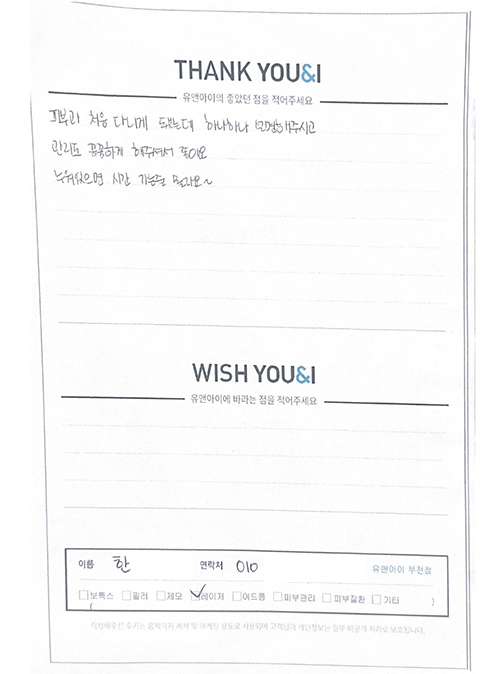 THANK YOU&I
유앤아이의 좋았던 점을 적어주세요
피부과 처음 다니게 됐는데 하나하나 설명해주시고
관리도 꼼꼼하게 해주셔서 좋아요
누워있으면 시간 가는줄 몰라요~
WISH YOU&I
유앤아이에 바라는 점을 적어주세요
이름 한 연락처 010 유앤아이 부천점
보톡스 필러 제모 레이저 여드름 피부관리 피부질환 기타
( )
직접해주신 후기는 홈페이지 게재 및 마케팅 용도로 사용되며 고객님의 개인정보는 일부 비공개 처리로 보호됩니다.